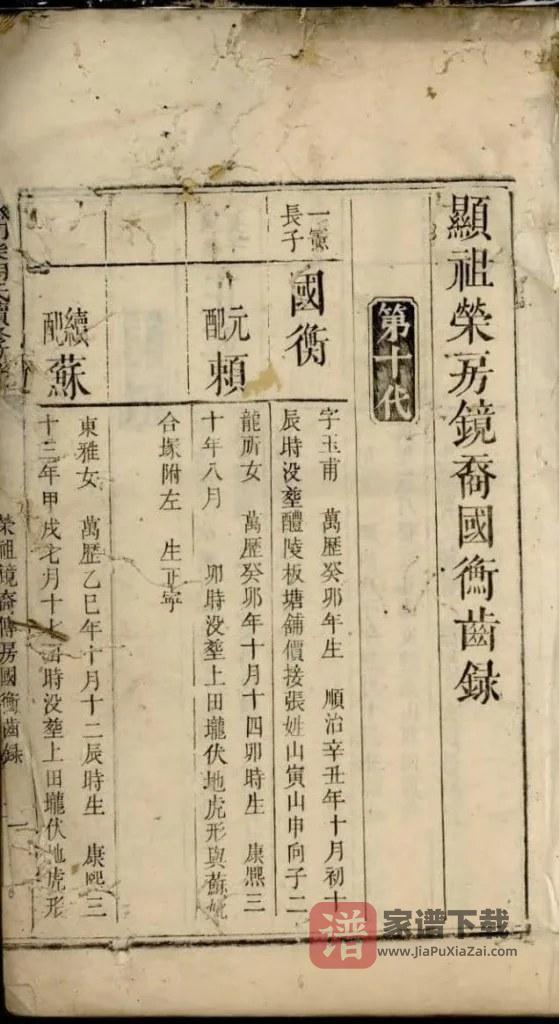 顯祖榮房鏡裔國衡齒録
第十代
長子
國衡
字玉甫 萬歷癸卯年生 順治辛丑年十月初十
辰時没塟醴陵板塘舖價接張姓山寅山申向子二
元配
頼
龍所女 萬歷癸卯年十月十四卯時生 康熈三
十年八月 卯時没塟上田壠伏地虎形與蘇妣
合塚附左 生正寧
續配
蘇
東雅女 萬歷乙巳年十月十二辰時生 康熈三
十三年甲戌七月十七酉時没塟上田壠伏地虎形
榮祖鏡裔傳房國衡齒録 一
谱
家谱下载
www.JiaPuXiaZai.com